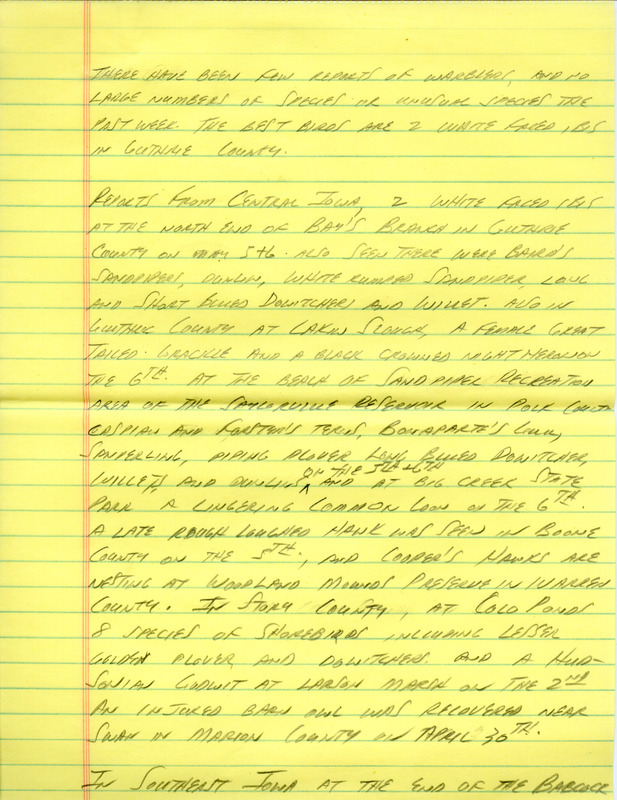 THERE HAVE BEEN FEW REPORTS OF WARBLERS, AND NO
LARGE NUMBERS OF SPECIES OR UNUSUAL SPECIES THE
PAST WEEK. THE BEST BIRDS ARE 2 WHITE FACED IBIS
IN GUTHRIE COUNTY.
REPORTS FROM CENTRAL IOWA, 2 WHITE FACED IBIS
AT THE NORTH END OF BAY'S BRANCH IN GUTHRIE
COUNTY ON MAY 5+6. ALSO SEEN THERE WERE BAIRD'S
SANDPIPERS, DUNLIN, WHITE RUMPED SANDPIPER, LONG
AND SHORT BILLED DOWITCHERS AND WILLET. ALSO IN
GUTHRIE COUNTY AT LAKIN SLOUGH, A FEMALE GREAT
TAILED GRACKLE AND A BLACK CROWNED NIGHT HERON ON
THE 6TH. AT THE BEACH OF SANDPIPER RECREATION
AREA OF THE SAYLORVILLE RESERVOIR IN POLK COUNTY
CASPIAN AND FORSTER'S TERNS, BONAPARTE'S GULL,
SANDERLING, PIPING PLOVER LONG BILLED DOWITCHER,
WILLETS AND DUNLINS ON THE 5TH +6TH AND AT BIG CREEK STATE
PARK A LINGERING COMMON LOON ON THE 6TH.
A LATE ROUGH LEGGED HAWK WAS SEEN IN BOONE
COUNTY ON THE 5TH, AND COOPER'S HAWKS ARE
NESTING AT WOODLAND MOUNDS PRESERVE IN WARREN
COUNTY. IN STORY COUNTY, AT COLO PONDS
8 SPECIES OF SHOREBIRDS INCLUDING LESSER
GOLDEN PLOVER AND DOWITCHERS. AND A HUD-
SONIAN GODWIT AT LARSON MARSH ON THE 2ND
AN INJURED BARN OWL WAS RECOVERED NEAR
SWAN IN MARION COUNTY ON APRIL 30TH.
IN SOUTHEST IOWA AT THE END OF THE BABCOCK